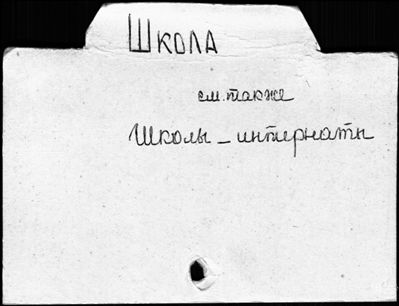 Школа
см. также
Школы - интернаты